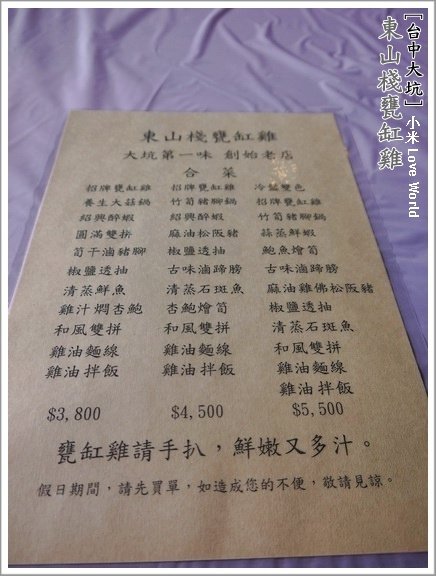 [台中大坑] 小米 Love World
東山棧甕缸雞
東山棧甕缸雞
大坑第一味 創始老店
合 菜
招牌甕缸雞
養生大菇鍋
紹興醉蝦
圓滿雙拼
筍干滷豬腳
椒鹽透抽
清蒸鮮魚
雞汁燜杏鮑
和風雙拼
雞油麵線
雞油拌飯
$3,800
招牌甕缸雞
竹筍豬腳鍋
紹興醉蝦
麻油松阪豬
椒鹽透抽
古味滷蹄膀
清蒸石斑魚
杏鮑燴筍
和風雙拼
雞油麵線
雞油拌飯
$4,500
冷盤雙色
招牌甕缸雞
竹筍豬腳鍋
蒜蒸鮮蝦
鮑魚燴筍
古味滷蹄膀
麻油雞佛松阪豬
椒鹽透抽
清蒸石斑魚
和風雙拼
雞油麵線
雞油拌飯
$5,500
甕缸雞請手扒，鮮嫩又多汁。
假日期間，請先買單，如造成您的不便，敬請見諒。